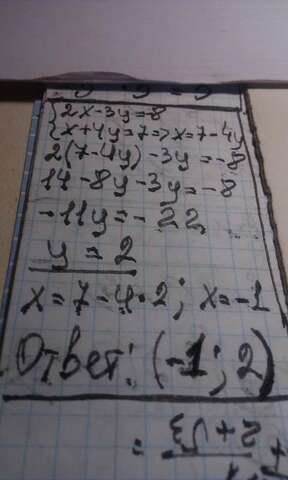 {2x-3y=-8
{x+4y=7=>x=7-4y
2(7-4y)-3y=-8
14-8y-3y=-8
-11y=-22
y=2
x=7-4·2; x=-1
Ответ: (-1; 2)
2+√3